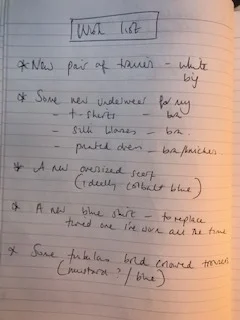 Wish list
* New pair of trainers - white
big
* Some new underwear for my
- t-shirts - bra
- silk blouses - bra
- printed dress - bra/knickers
* A new oversized scarf
(ideally cobalt blue)
* A new blue shirt - to replace
tired one I've worn all the time
* Some fabulous bold coloured trousers
(mustard? / blue)